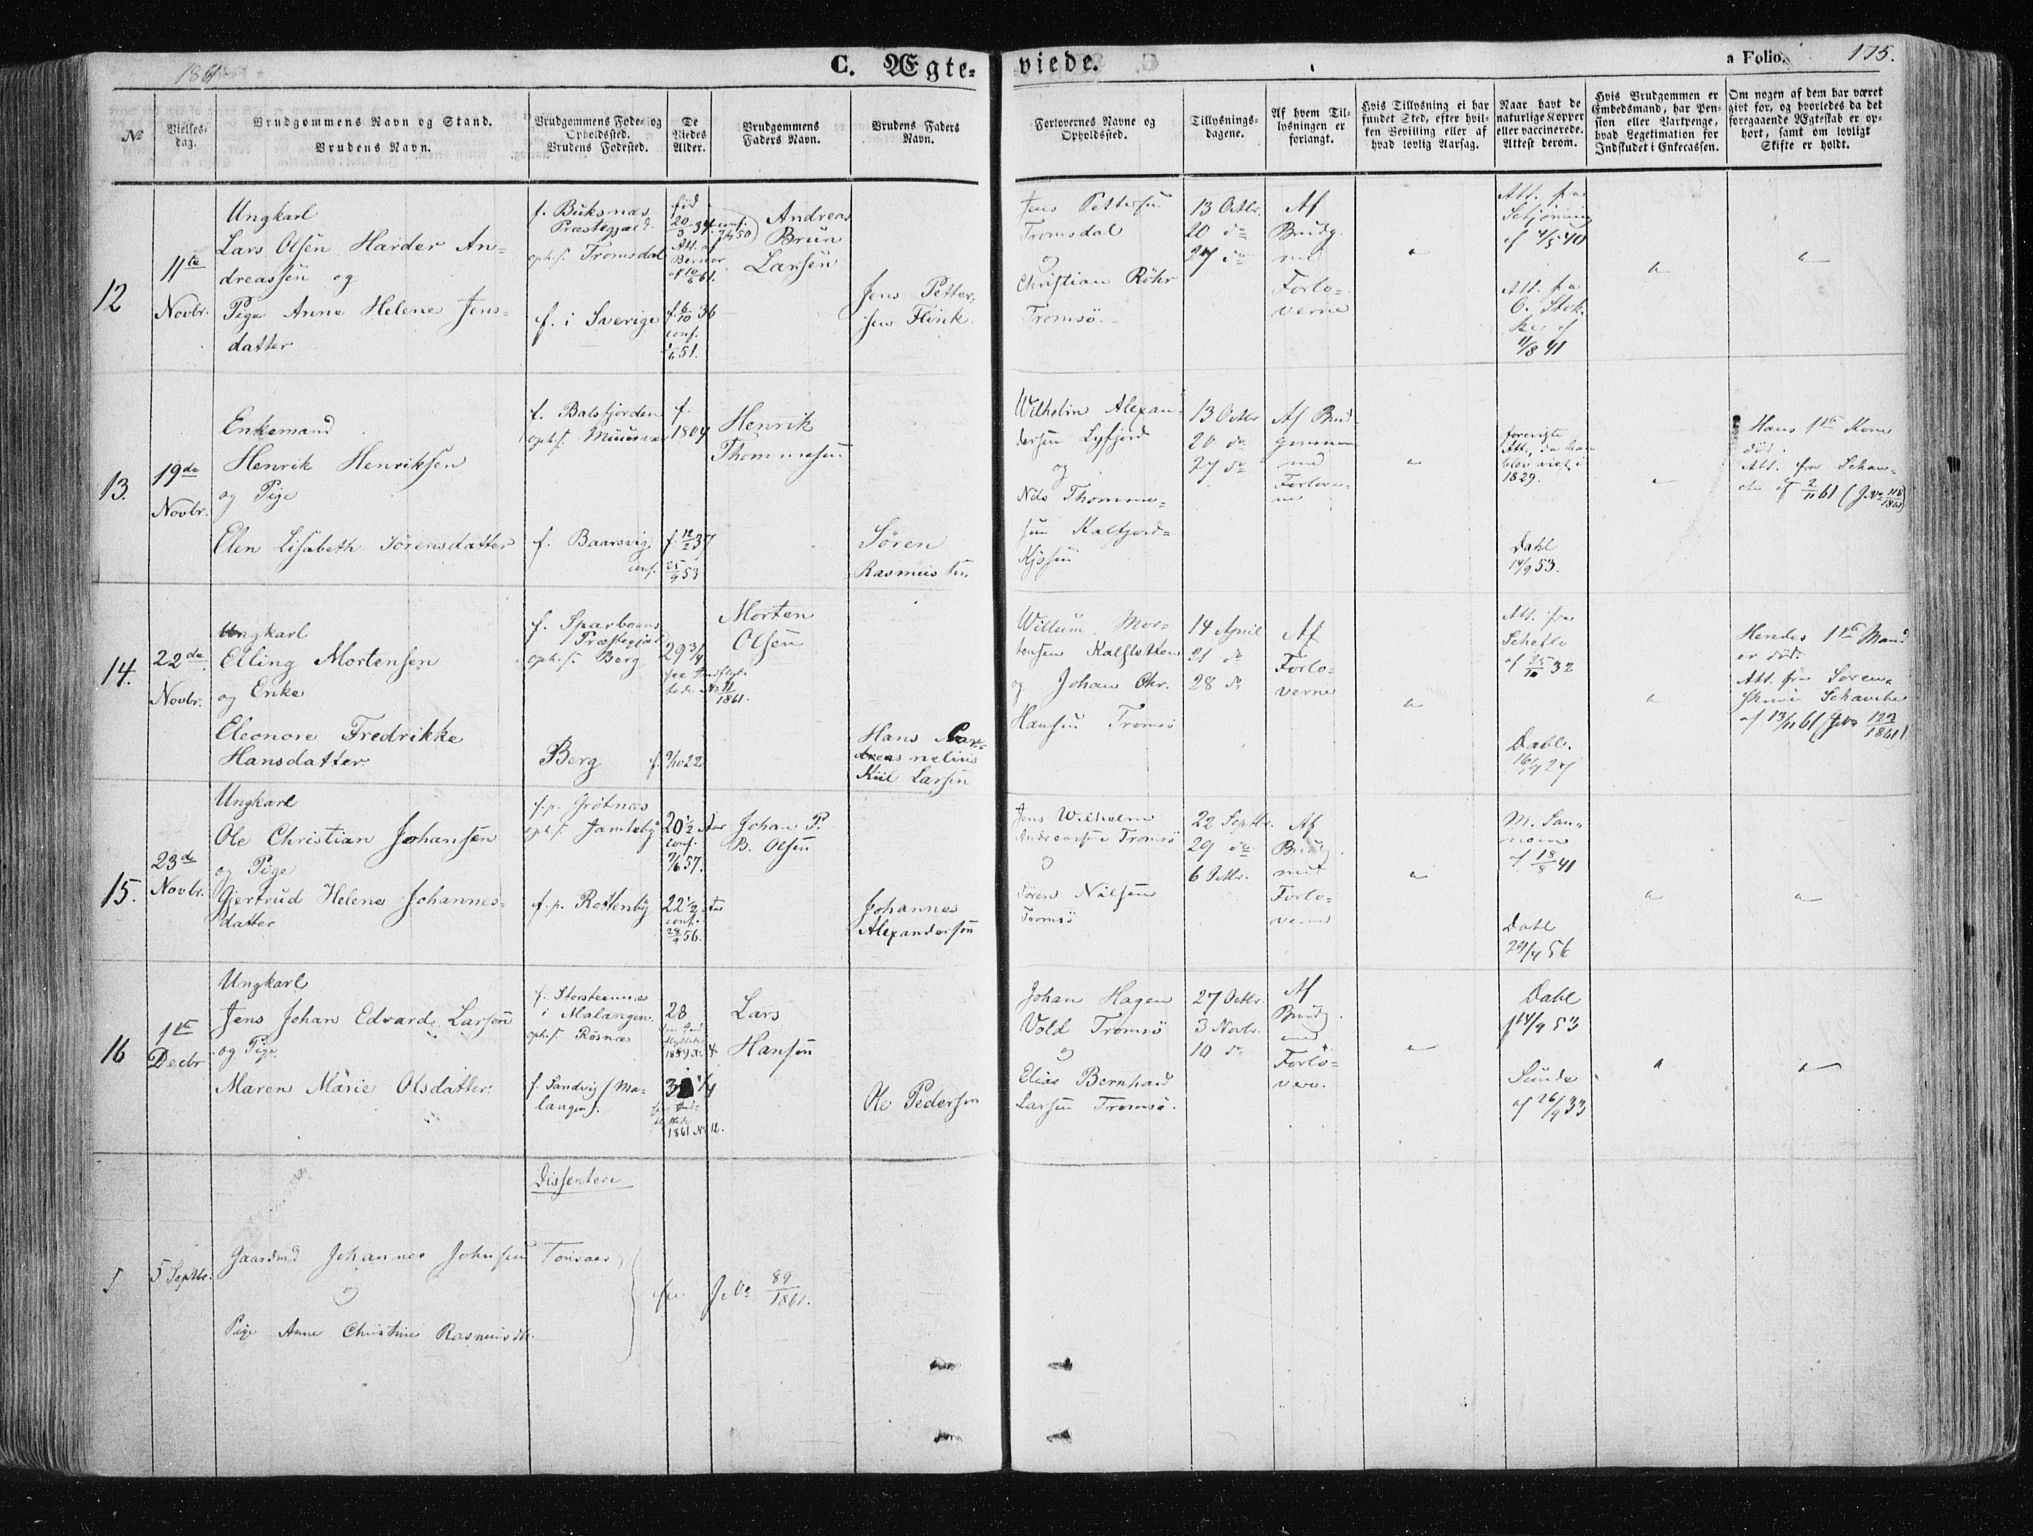 1861.
C. Ægte-
viede.
a Folio.
175.
No
Vielses-
dag.
Brudgommens Navn og Stand.
Brudens Navn.
Brudgommens Føde- og
Opholdssted.
Brudens Fødested.
De
Viedes
Alder.
Brudgommens
Faders Navn.
Brudens Faders
Navn.
Forlovernes Navne og
Opholdssted.
Tillysnings-
dagene.
Af hvem Til-
lysningen er
forlangt.
Hvis Tillysning ei har
fundet Sted, efter hvil-
ken Bevilling eller af
hvad lovlig Aarsag.
Naar havt de
naturlige Kopper
eller vaccinerede.
Attest derom.
Hvis Brudgommen er
Embedsmand, har Pen-
sion eller Vartpenge,
hvad Legitimation for
Indskudet i Enkecassen.
Om nogen af dem har været
givt før, og hvorledes da det
foregaaende Ægteskab er op-
hørt, samt om lovligt
Skifte er holdt.
12
11te
Novbr.
Ungkarl
Lars Olsen Harder An-
dreassen og
Pige Anne Helene Jens-
datter
f. Buksnæs
Præstegjæld.
oph.s. Tromsdal
f. i Sverige
fød
20/3 34
Att. af
Berner
af 10/6 61.
f. 6/10 36
conf.
51.
Andreas
Brun
Larsen
Jens Petter-
sen Flink.
Jens Pettersen
Tromsdal
og
Christian Röhr
Tromsø.
13 Octbr.
20 do
27 do
Af
Brudg.
med
Forlo-
verne
Att. fra
af 4/5 40
Att. fra
af
11/8 41
13.
19de
Novbr.
Enkemand
Henrik Henriksen
og Pige
Elen Lisabeth Sørensdatter
f. Balsfjorden
oph.s. Muusvær
f. Baarsvig
conf.
f.
1804
f. 12/2 37
25/9 53
Henrik
Thommesen
Søren
Rasmussen
Wilhelm Alexan-
dersen Lyfjord
og
Nils Thomme-
sen Kalfjord-
13 Octbr.
20 do
27 do
Af Brud
gommen
med
Forlover-
ne
forevigte
Att., da han
blev viet i
1829.
Dahl
14/9 53.
Hans 1te Kone
død.
Att. fra Schan-
che af 2/11 61 (J.No 118/1861)
14.
22de
Novbr.
Ungkarl
Elling Mortensen
og Enke
Eleonore Fredrikke
Hansdatter
f. Sparboens
Præstegjæld
oph.s. Berg
Berg
29 3/4
11/1861.
f. 9/10 22
Morten
Olsen
Hans
Kiil Larsen
Willum Mor-
tensen Kalfsletten
og Johan Chr.
Hansen Tromsø
14 April
21 do
28 do
Af
Forlo-
verne
Att. fra
Schetlo
af 25/10 32
Dahl.
16/9 27
Hendes 1te Mand
er død.
Att. fra Soren-
skriv Schanche
af 13/11 61 (J.No 122/1861)
15.
23de
Novbr.
Ungkarl
Ole Christian Johansen
og Pige
Gjertrud Helene Johannes-
datter
f.p. Grötnæs
oph.s. Jamteby
f.p. Rottenby
20 1/2 Aar
conf.
7/6 57.
22 1/2 Aar
conf.
28/9 56.
Johan P.
B. Olsen
Johannes
Alexandersen
Jens Wilhelm
Andreassen Tromsø
og
Søren Nilsen
Tromsø
22 Septbr.
29 do
6 Octbr.
Af
Brudg.
med
Forlo-
verne
af 18/8 41
Dahl
29/4 56
16
1te
Decbr
Ungkarl
Jens Johan Edvard Larsen
og Pige
Maren Marie Olsdatter.
f. Storsteennæs
i Malangen.
oph.s. Rösnæs
f. Sandvig (Ma-
langen).
28
1859 No 4
1/4
1861 No 12.
Lars
Hansen
Ole Pedersen
Johan Hagen
Vold Tromsø
og
Elias Bernhard
Larsen Tromsø.
27 Octbr.
3 Novbr.
10 do
Af
Brudg.
med
Forlo-
vere.
Dahl
14/9 53
Sunde
af 26/9 33
Dissentere
5 Septbr.
Gaardmd Johannes Johnsen
og
Pige Anne Christine Rasmusdtr.
Tonsaas
J.No 89/1861.